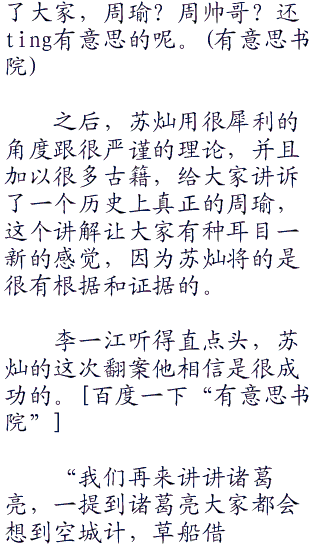 了大家，周瑜？周帅哥？还
ting有意思的呢。(有意思书
院)
之后，苏灿用很犀利的
角度跟很严谨的理论，并且
加以很多古籍，给大家讲诉
了一个历史上真正的周瑜，
这个讲解让大家有种耳目一
新的感觉，因为苏灿将的是
很有根据和证据的。
李一江听得直点头，苏
灿的这次翻案他相信是很成
功的。[百度一下“有意思书
院”]
“我们再来讲讲诸葛
亮，一提到诸葛亮大家都会
想到空城计，草船借